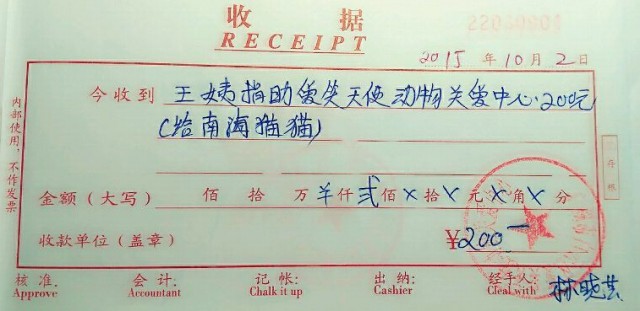 收 据
RECEIPT
2015 年 10 月 2 日
今收到 王姨捐助爱笑天使动物关爱中心.200元
(给南海猫猫)
金额(大写) 佰 拾 万 羊仟 贰佰 x 拾 x 元 x 角 x 分
收款单位(盖章) ¥200
核准: 会计: 记帐: 出纳: 经手人: 林晓芸
Approve Accountant Chalk it up Cashier Cleal with
内部使用,不作发票